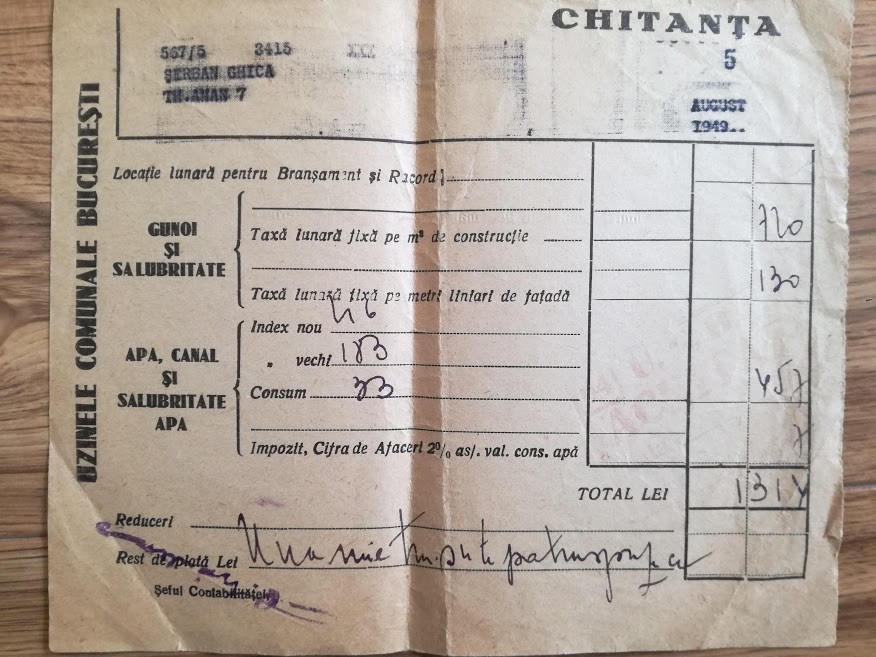 CHITANŢA
567/5 3415 XXX
ŞERBAN GHICA
TH.AMAN 7
5
AUGUST
1949..
UZINELE COMUNALE BUCUREŞTI
Locaţie lunară pentru Branşament şi Racord
720
GUNOI
ŞI
SALUBRITATE
Taxă lunară fixă pe m² de construcţie
130
Taxă lunară fixă pe metri liniari de faţadă
APA, CANAL
ŞI
SALUBRITATE
APA
Index nou
" vechi 183
Consum 33
457
7
Impozit, Cifra de Afaceri 2% as/. val. cons. apă
TOTAL LEI 1314
Reduceri
Rest de plată Lei Una mie
Şeful Contabilităţei